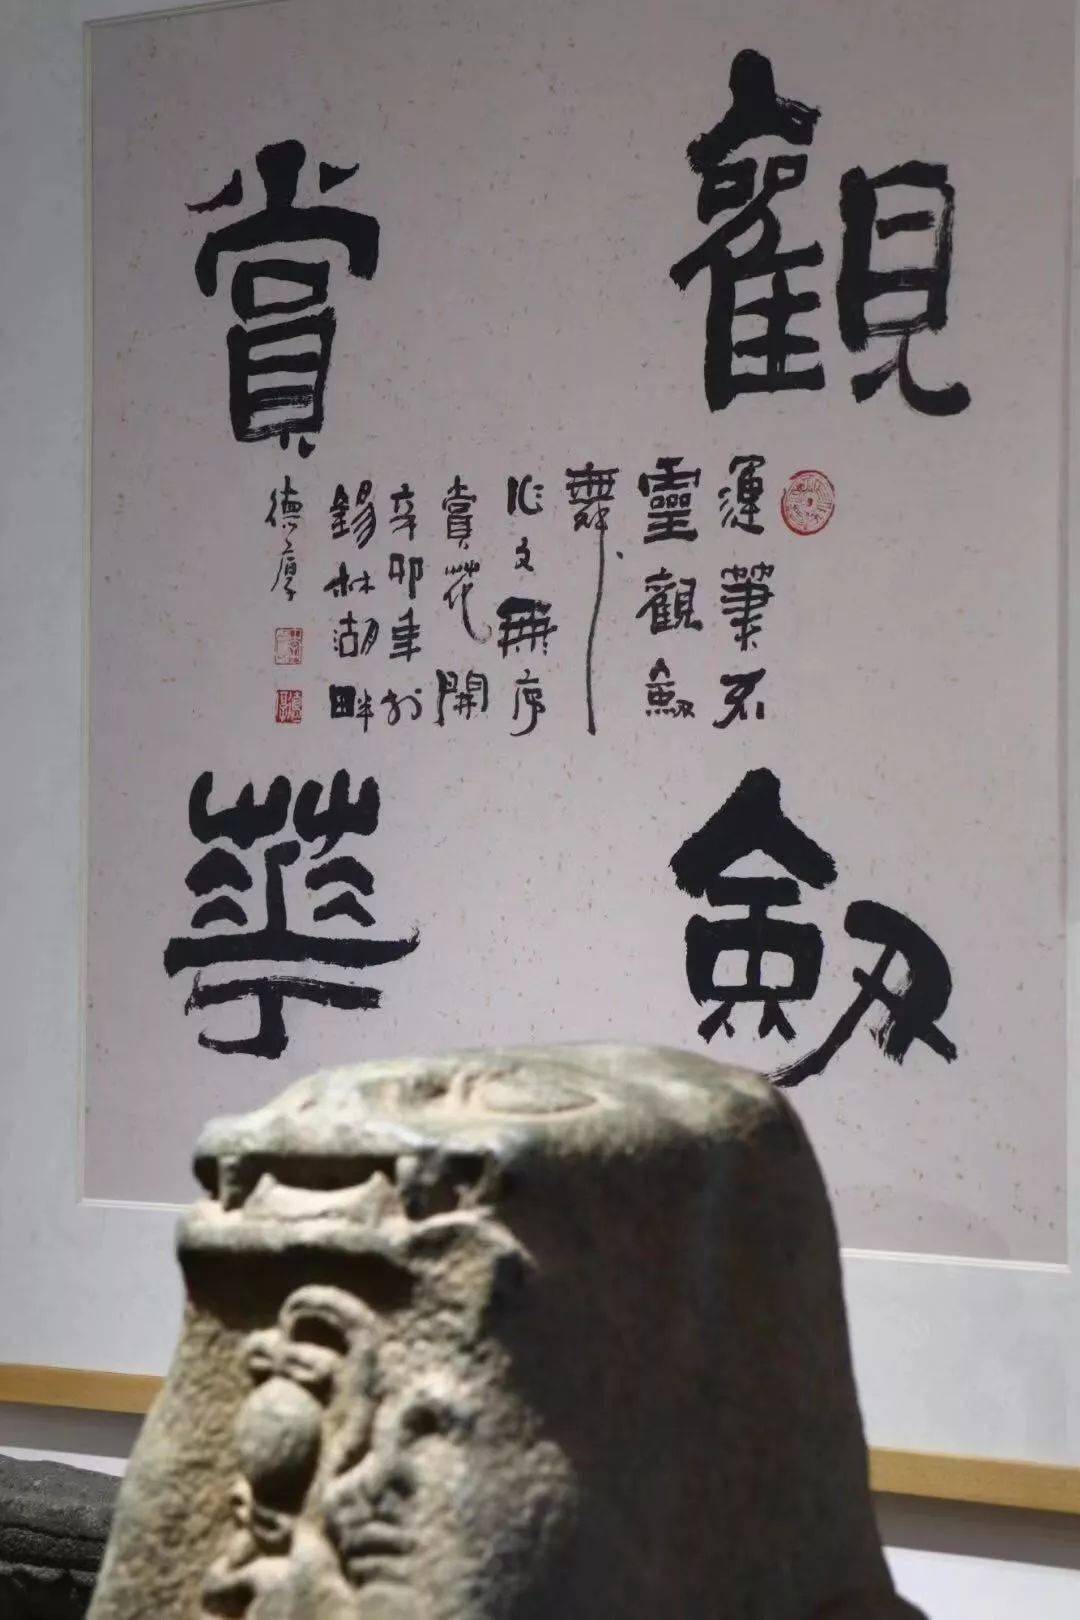 觀劍
賞華
運筆不
靈觀劍
舞
作文無序
賞花開
辛卯年於
錫林湖畔
德厚